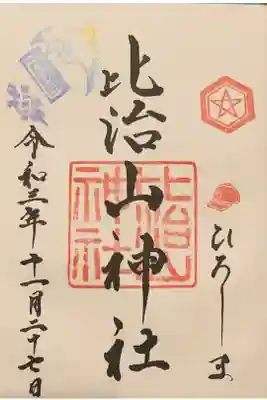 ひろしま
比治山神社
比治山
神社
令和三年十一月二十七日